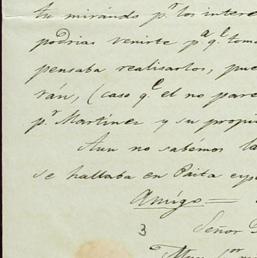 tu mirándo pr los intere
podrias venirte pa qe toma
pensaba realisarlos, pue
rán, (caso qe el no pare
pr Martinez y su propi
Aun no sabemos la
se hallaba en Paita esp
Amigo
3 Señor D
Muy Sor